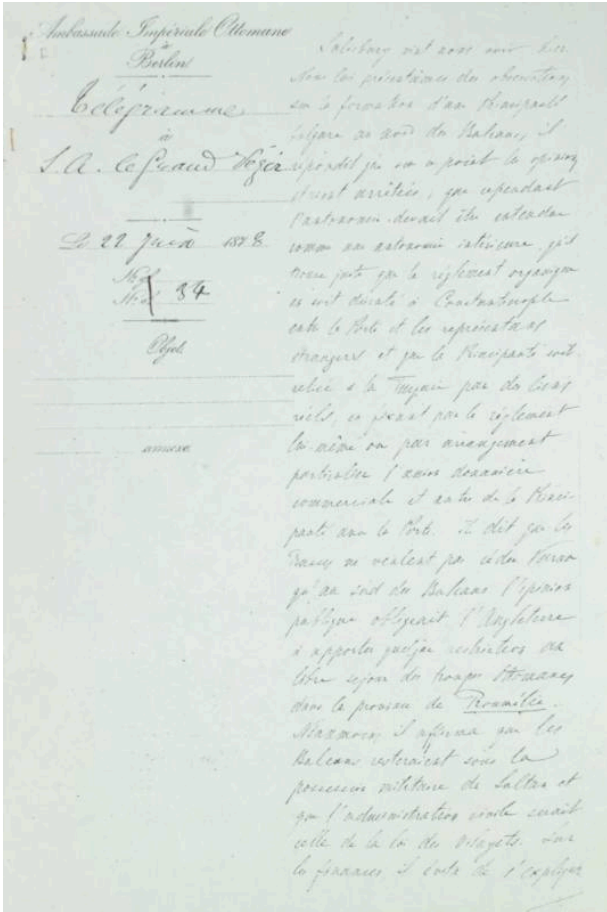 Ambassade Impériale Ottomane
à
Berlin
Télégramme
à
S. A. le Grand Vézir
Le 22 Juin 1878
No. gl.
No. sl. 34
Objet
annexe
Salisbury vint nous voir hier.
Nous lui présentâmes des observations
sur la formation d'une Principauté
bulgare au nord des Balcans, il
répondit que sur ce point les opinions
étaient arrêtées, que cependant
l'autonomie devait être entendue
comme une autonomie intérieure, qu'il
trouve juste que le règlement organique
en soit discuté à Constantinople
entre la Porte et les représentans
étrangers et que la Principauté soit
reliée à la Turquie par des liens
réels, en fixant par le règlement
lui-même ou par arrangement
particulier l'union douanière
commerciale et autre de la Princi-
pauté avec la Porte. Il dit que les
Russes ne veulent pas céder
qu'au sud des Balcans l'opinion
publique obligeait l'Angleterre
à apporter quelque restriction au
libre séjour des troupes Ottomanes
dans la province de Roumélie.
Néanmoins il affirma que les
Balcans resteraient sous la
possession militaire du Sultan et
que l'administration civile serait
celle de la loi des Vilayets. Sur
les finances il évita de s'expliquer